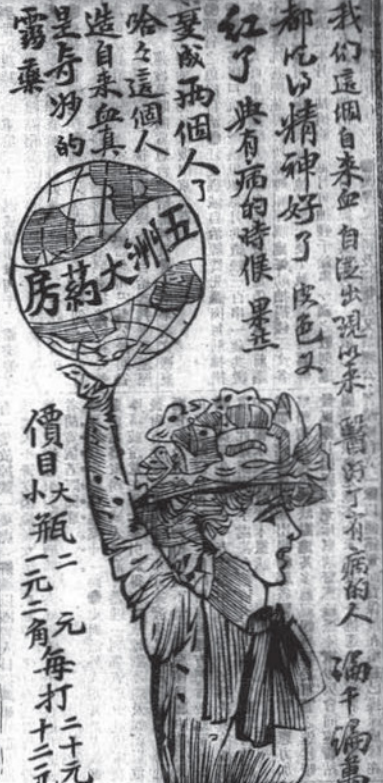 我们這個自来血自從出現以来醫好了有病的人千萬
都吃的精神好了皮色又
紅了與有病的時候
變成兩個人了
哈々這個人
造自来血真
是奇妙的
靈藥
五洲大葯房
價目大小瓶二元一元二角每打二十元十二元